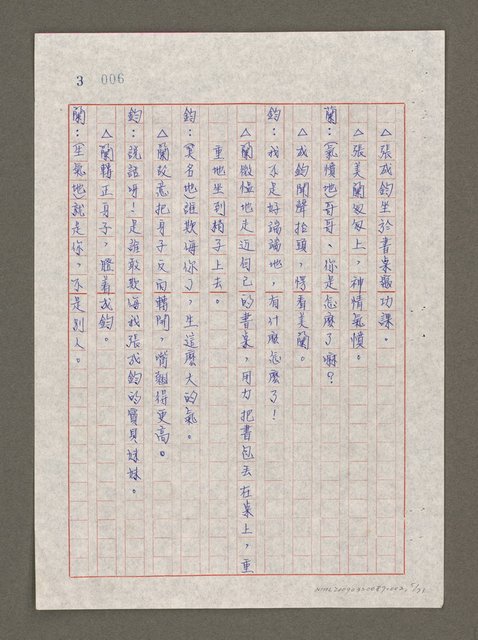 3 006
△張成鈞坐於書桌溫功課。
△張美蘭匆匆上，神情氣憤。
蘭：（氣憤地）哥哥、你是怎麼了嘛？
△成鈞聞聲抬頭，愣看美蘭。
鈞：我不是好端端地，有什麼怎麼了！
△蘭微慍地走近自己的書桌，用力把書包丟在桌上，重
重地坐到椅子上去。
鈞：（莫名地）誰欺侮你了，生這麼大的氣。
△蘭故意把身子反而轉開，嘴翹得更高。
鈞：說話呀！是誰敢欺侮我張成鈞的寶貝妹妹。
△蘭轉正身子，瞪着成鈞。
蘭：（生氣地）就是你，不是別人。